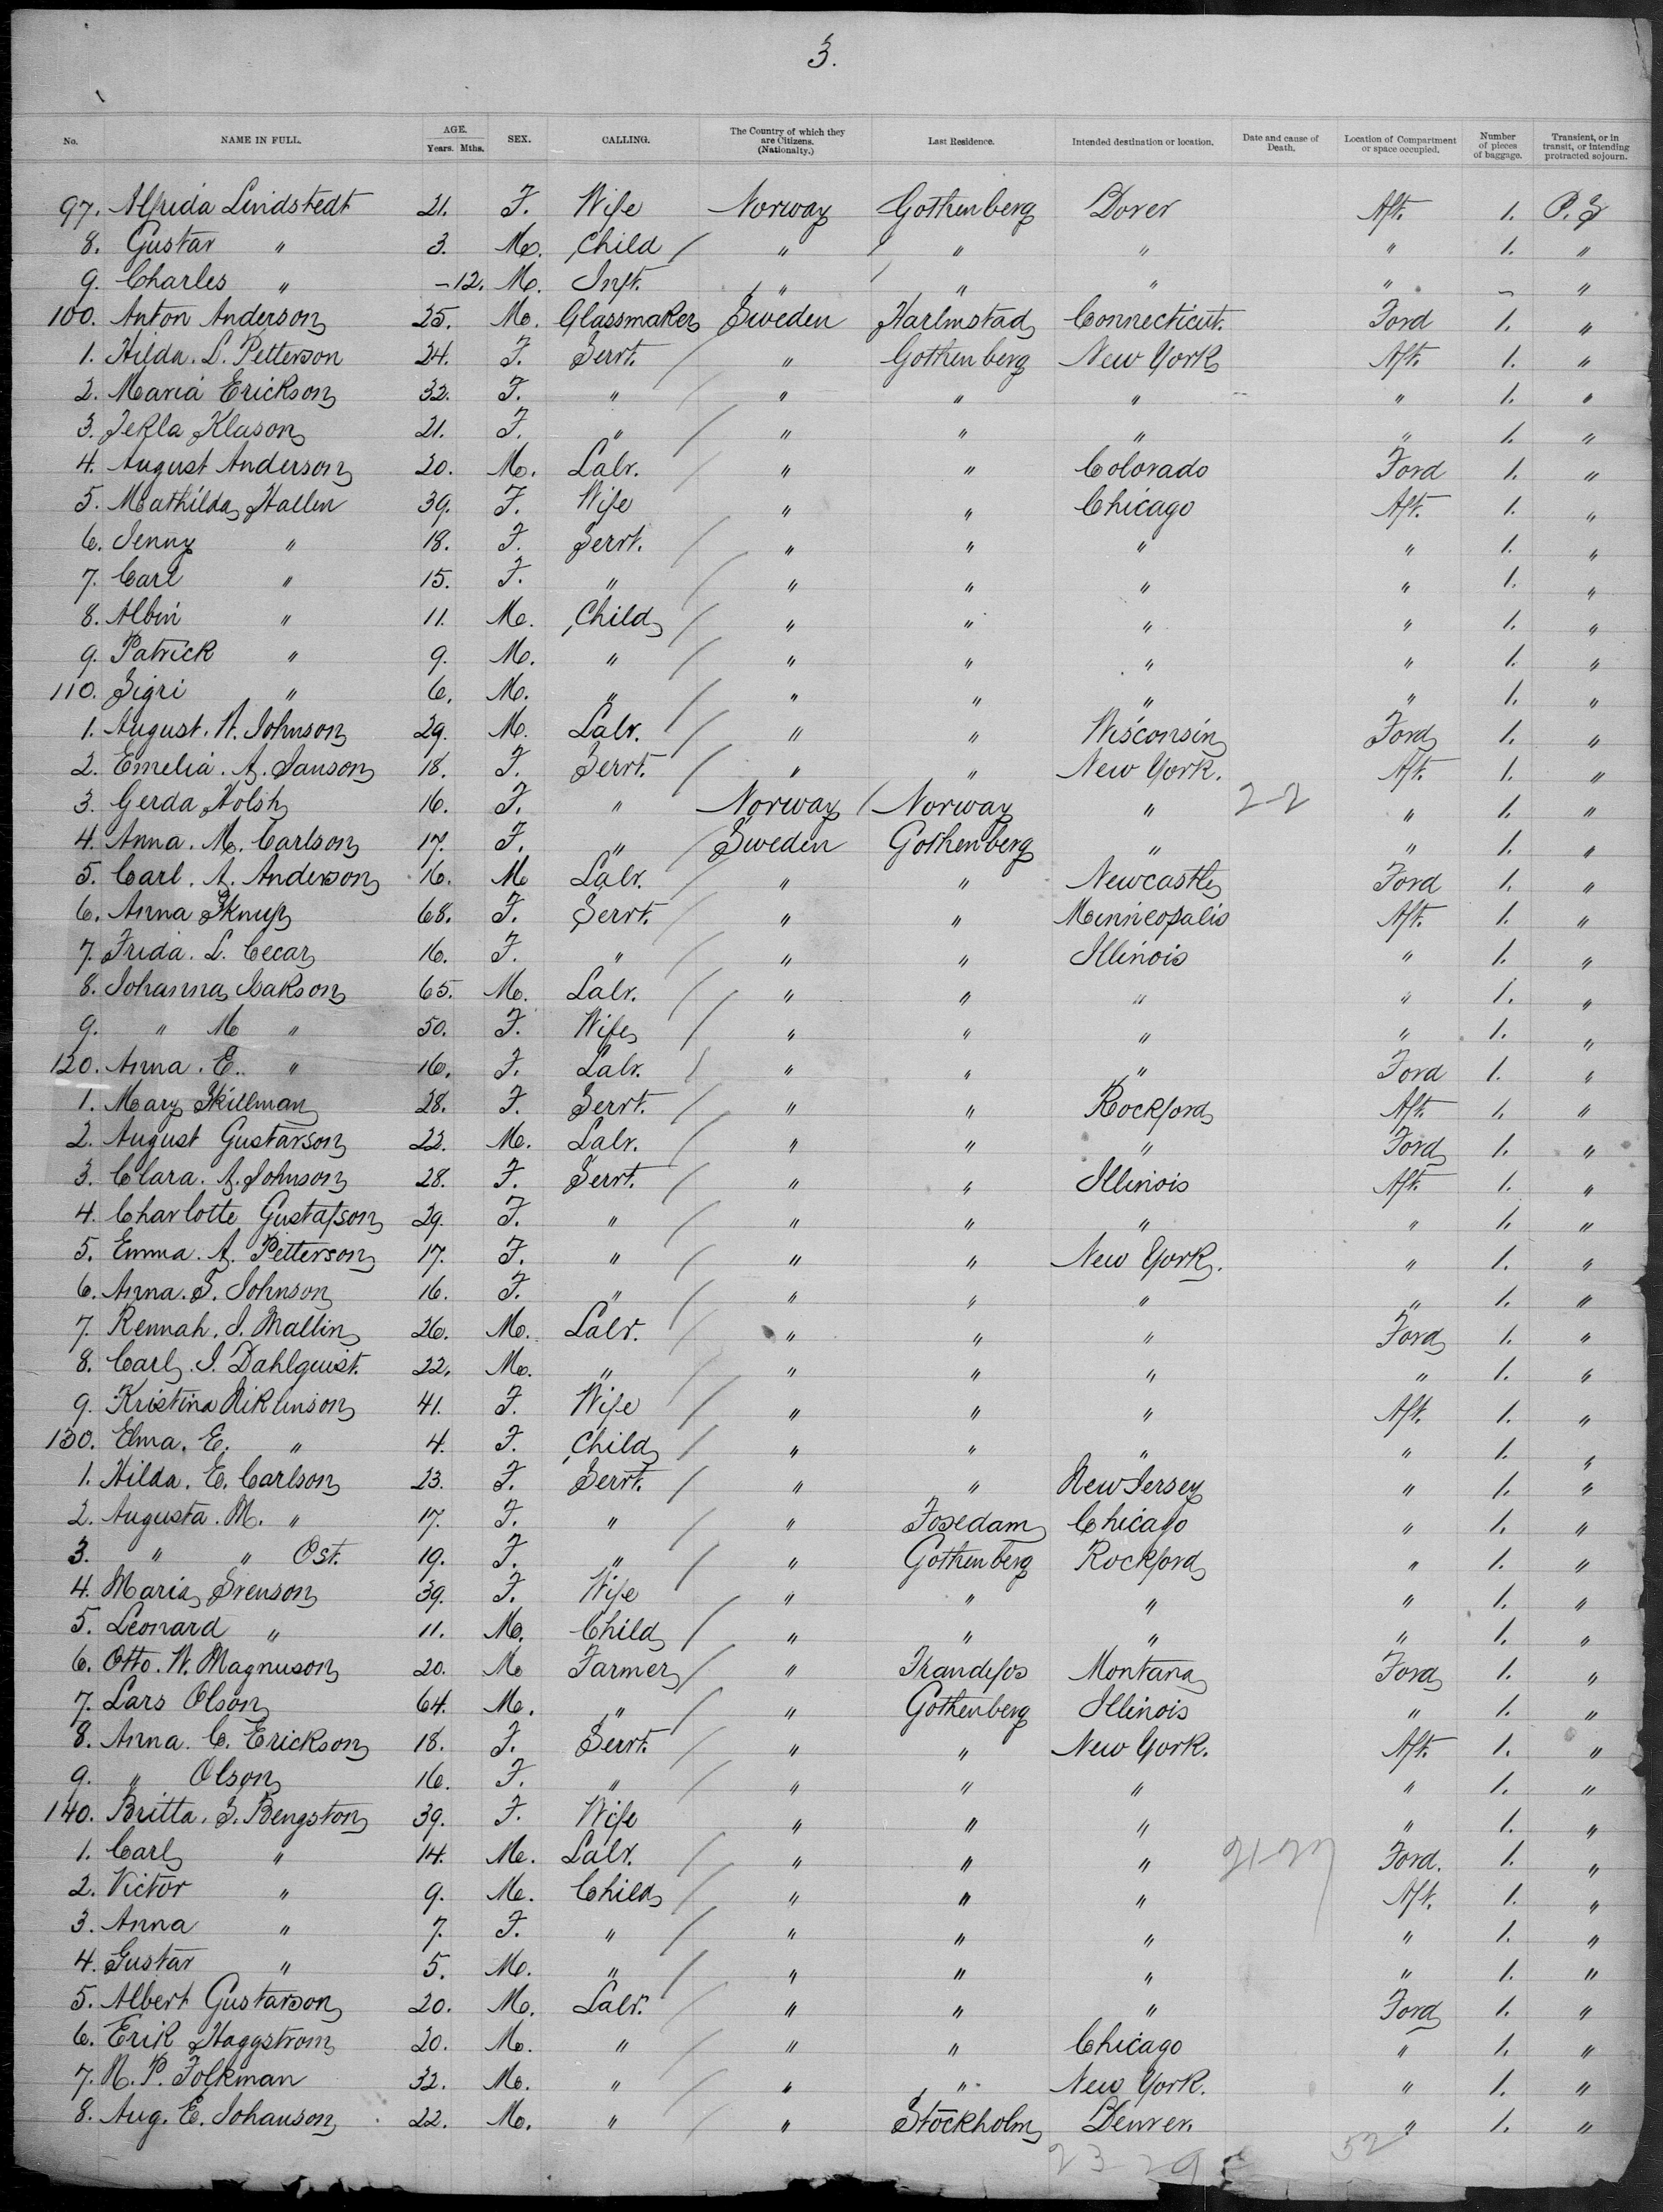 3.
No. NAME IN FULL. AGE. Years. Mths. SEX. CALLING. The Country of which they are Citizens. (Nationalty.) Last Residence. Intended destination or location. Date and cause of Death. Location of Compartment or space occupied. Number of pieces of baggage. Transient, or in transit, or intending protracted sojourn.
97. Alfrida Lindstedt 21. F. Wife Norway Gothenberg Dover Aft. 1. P.S
8. Gustav " 3. M. Child " " " " 1. "
9. Charles " -12. M. Inft. " " " " - "
100. Anton Anderson 25. M. Glassmaker Sweden Harlmstad Connecticut. Ford 1. "
1. Hilda. L. Petterson 24. F. Servt. " Gothenberg New York Aft. 1. "
2. Maria Erickson 32. F. " " " " " 1. "
3. Tekla Klason 21. F. " " " " " 1. "
4. August Anderson 20. M. Labr. " " Colorado Ford 1. "
5. Mathilda Hallen 39. F. Wife " " Chicago Aft. 1. "
6. Jenny " 18. F. Servt. " " " " 1. "
7. Carl " 15. F. " " " " " 1. "
8. Albin " 11. M. Child " " " " 1. "
9. Patrick " 9. M. " " " " " 1. "
110. Sigri " 6. M. " " " " " 1. "
1. August. W. Johnson 29. M. Labr. " " Wisconsin Ford 1. "
2. Emelia. A. Janson 18. F. Servt. " " New York. Aft. 1. "
3. Gerda Holsh 16. F. " Norway Norway " 2-2 " 1. "
4. Anna. M. Carlson 17. F. " Sweden Gothenberg " " 1. "
5. Carl. A. Anderson 16. M Labr. " " Newcastle Ford 1. "
6. Anna 68. F. Servt. " " Minneopalis Aft. 1. "
7. Frida. L. Cecar 16. F. " " " Illinois " 1. "
8. Johanna Isakson 65. M. Labr. " " " " 1. "
9. " M " 50. F. Wife " " " " 1. "
120. Anna. E. " 16. F. Labr. " " " Ford 1. "
1. Mary Skillman 28. F. Servt. " " Rockford Aft. 1. "
2. August Gustavson 22. M. Labr. " " " Ford 1. "
3. Clara. A. Johnson 28. F. Servt. " " Illinois Aft. 1. "
4. Charlotte Gustafson 29. F. " " " " " 1. "
5. Emma. A. Petterson 17. F. " " " New York. " 1. "
6. Anna. S. Johnson 16. F. " " " " " 1. "
7. Rennah. J. Mallin 26. M. Labr. " " " Ford 1. "
8. Carl. J. Dahlquist. 22. M. " " " " " 1. "
9. Kristina Niklinson 41. F. Wife " " " Aft. 1. "
130. Elma. E. " 4. F. Child " " " " 1. "
1. Hilda. E. Carlson 23. F. Servt. " " New Jersey " 1. "
2. Augusta. M. " 17. F. " " Fosedam Chicago " 1. "
3. " " Ost. 19. F. " " Gothenberg Rockford " 1. "
4. Maria Svenson 39. F. Wife " " " " 1. "
5. Leonard " 11. M. Child " " " " 1. "
6. Otto. W. Magnuson 20. M Farmer " Montana Ford 1. "
7. Lars Olson 64. M. " " Gothenberg Illinois " 1. "
8. Anna. C. Erickson 18. F. Servt. " " New York. Aft. 1. "
9. " Olson 16. F. " " " " " 1. "
140. Britta. S. Bengston 39. F. Wife " " " " 1. "
1. Carl " 14. M. Labr. " " " 21-27 Ford. 1. "
2. Victor " 9. M. Child " " " Aft. 1. "
3. Anna " 7. F. " " " " " 1. "
4. Gustav " 5. M. " " " " " 1. "
5. Albert Gustavson 20. M. Labr. " " " Ford 1. "
6. Erik Haggstrom 20. M. " " " Chicago " 1. "
7. N. P. Folkman 32. M. " " " New York. " 1. "
8. Aug. E. Johanson 22. M. " " Stockholm Denver. " 1. "
23 29 52